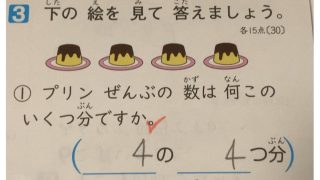 3 下の絵を見て答えましょう。
各15点(30)
① プリンぜんぶの数は何この
いくつ分ですか。
( 4の 4つ分 )